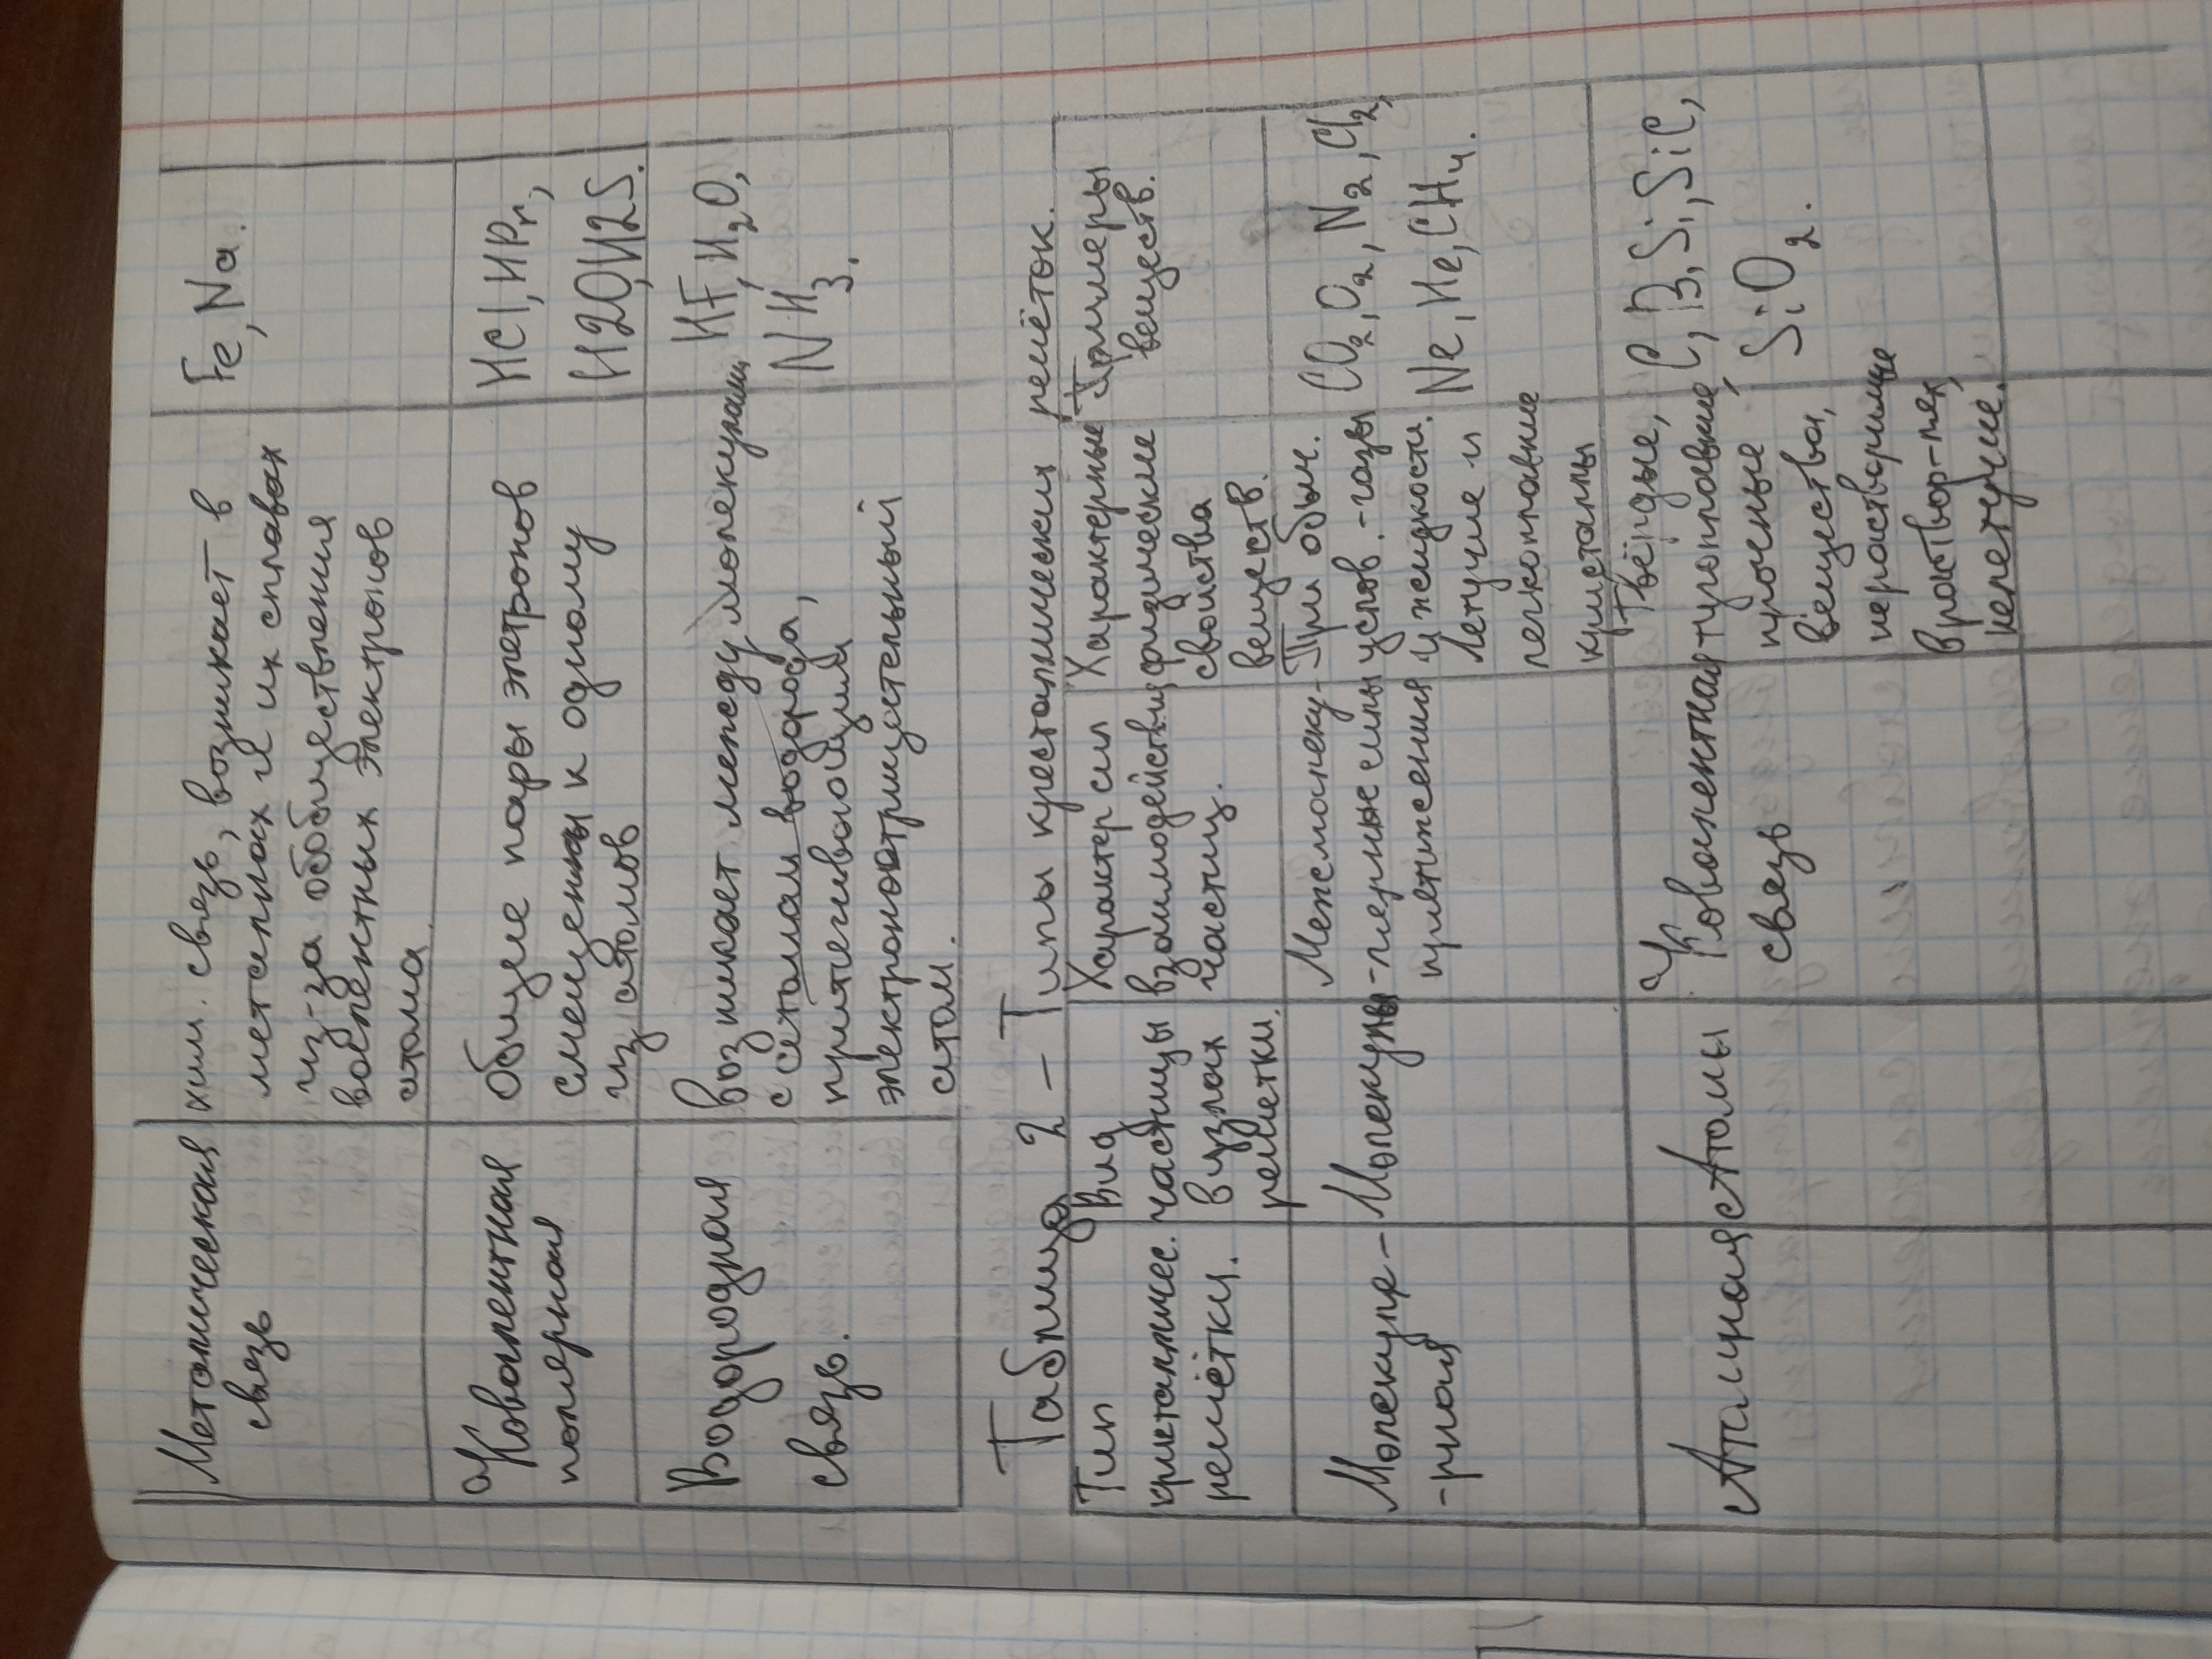 Металическая
связь
хим. связь, возникает в
металлах и их сплавах
из-за обобществления
валентных электронов
атома.
Fe, Na.
Ковалентная
полярная
общие пары элетронов
смещенны к одному
из атомов
HCl, HBr,
H2O, H2S.
Водородная
связь.
возникает между молекулами
с атомам водорода,
притягивающим
электроноотрицательный
атом.
HF, H2O,
NH3.
Таблица 2 – Типы кресталических решёток.
Тип
кристалличес.
решётки.
Вид
частицы
в узлах
решетки.
Характер сил
взаимодействия
частиц.
Характерные
физические
свойства
веществ.
Примеры
веществ.
Молекуля-
-рная
Молекулы
Межмолеку-
-лярные силы
притяжения
При обыч.
услов.-газы
и жидкости.
Летучие и
легкоплавкие
кристаллы
CO2, O2, N2, Cl2,
Ne, He, CH4.
Атомная
Атомы
Ковалентная
связь
Твёрдые,
тугоплавкие,
прочные
вещества,
нерастворимые
в раствор-лях,
нелетучие.
C, B, Si, SiC,
SiO2.